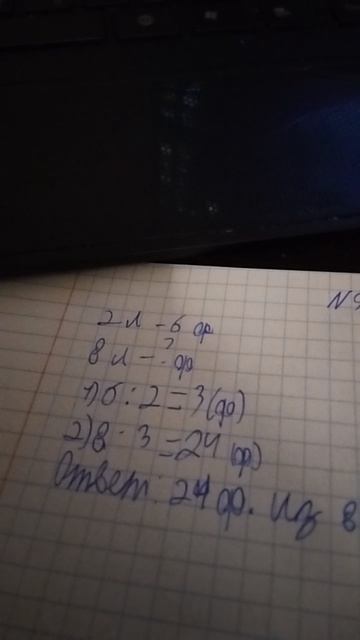 N9
2 л – 6 ф
8 л – ? ф
1) 6 : 2 = 3 (ф)
2) 8 · 3 = 24 (ф)
Ответ: 24 ф. из 8